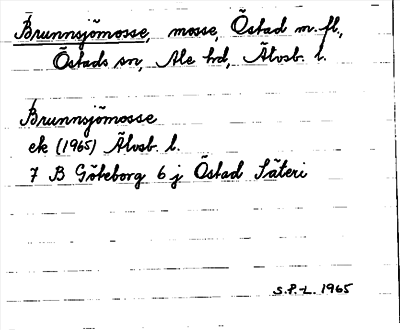 Brunnsjömosse, mosse, Östad m. fl.,
Östads sn, Ale hd, Älvsb. l.
Brunnsjömosse
ek (1965) Älvsb. l.
7 B Göteborg 6 j Östad Säteri
S.P.-L. 1965